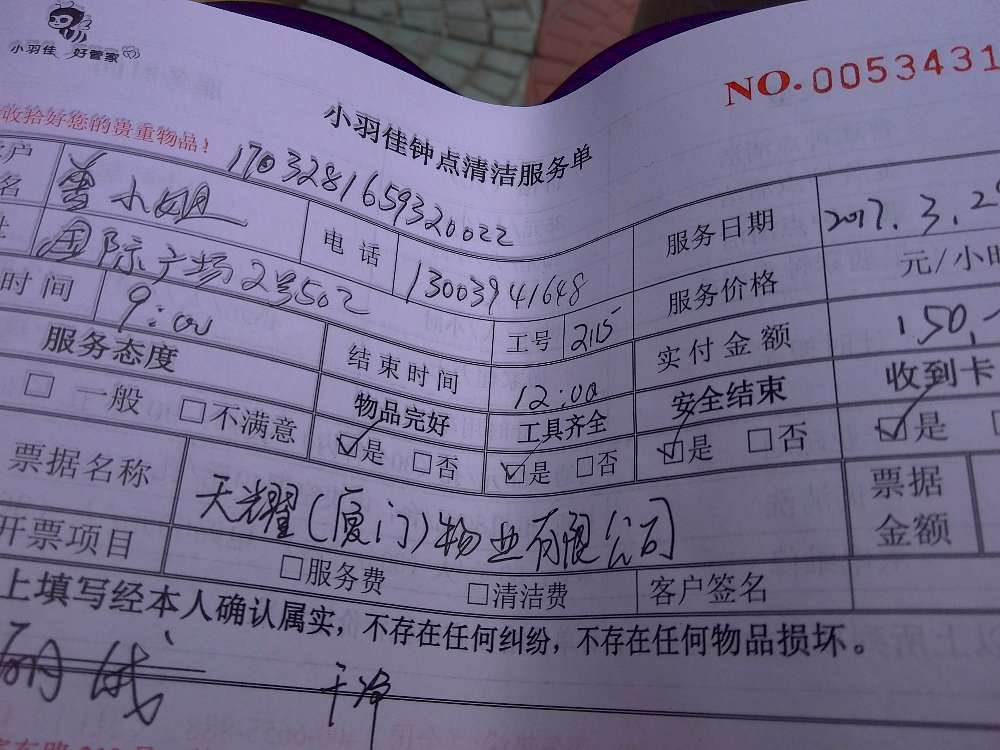 小羽佳 好管家
NO.0053431
收拾好您的贵重物品！
小羽佳钟点清洁服务单
1703281659320022
户名 曾小姐 电话 13003941648 服务日期 2017.3.2
国际广场2号502 服务价格 元/小时
时间 9:00 结束时间 12:00 工号 2115 实付金额 150.
服务态度 物品完好 工具齐全 安全结束 收到卡
□一般 □不满意 ☑是 □否 ☑是 □否 ☑是 □否 ☑是
票据名称 天耀(厦门)物业有限公司 票据金额
开票项目 □服务费 □清洁费 客户签名
上填写经本人确认属实，不存在任何纠纷，不存在任何物品损坏。
干净